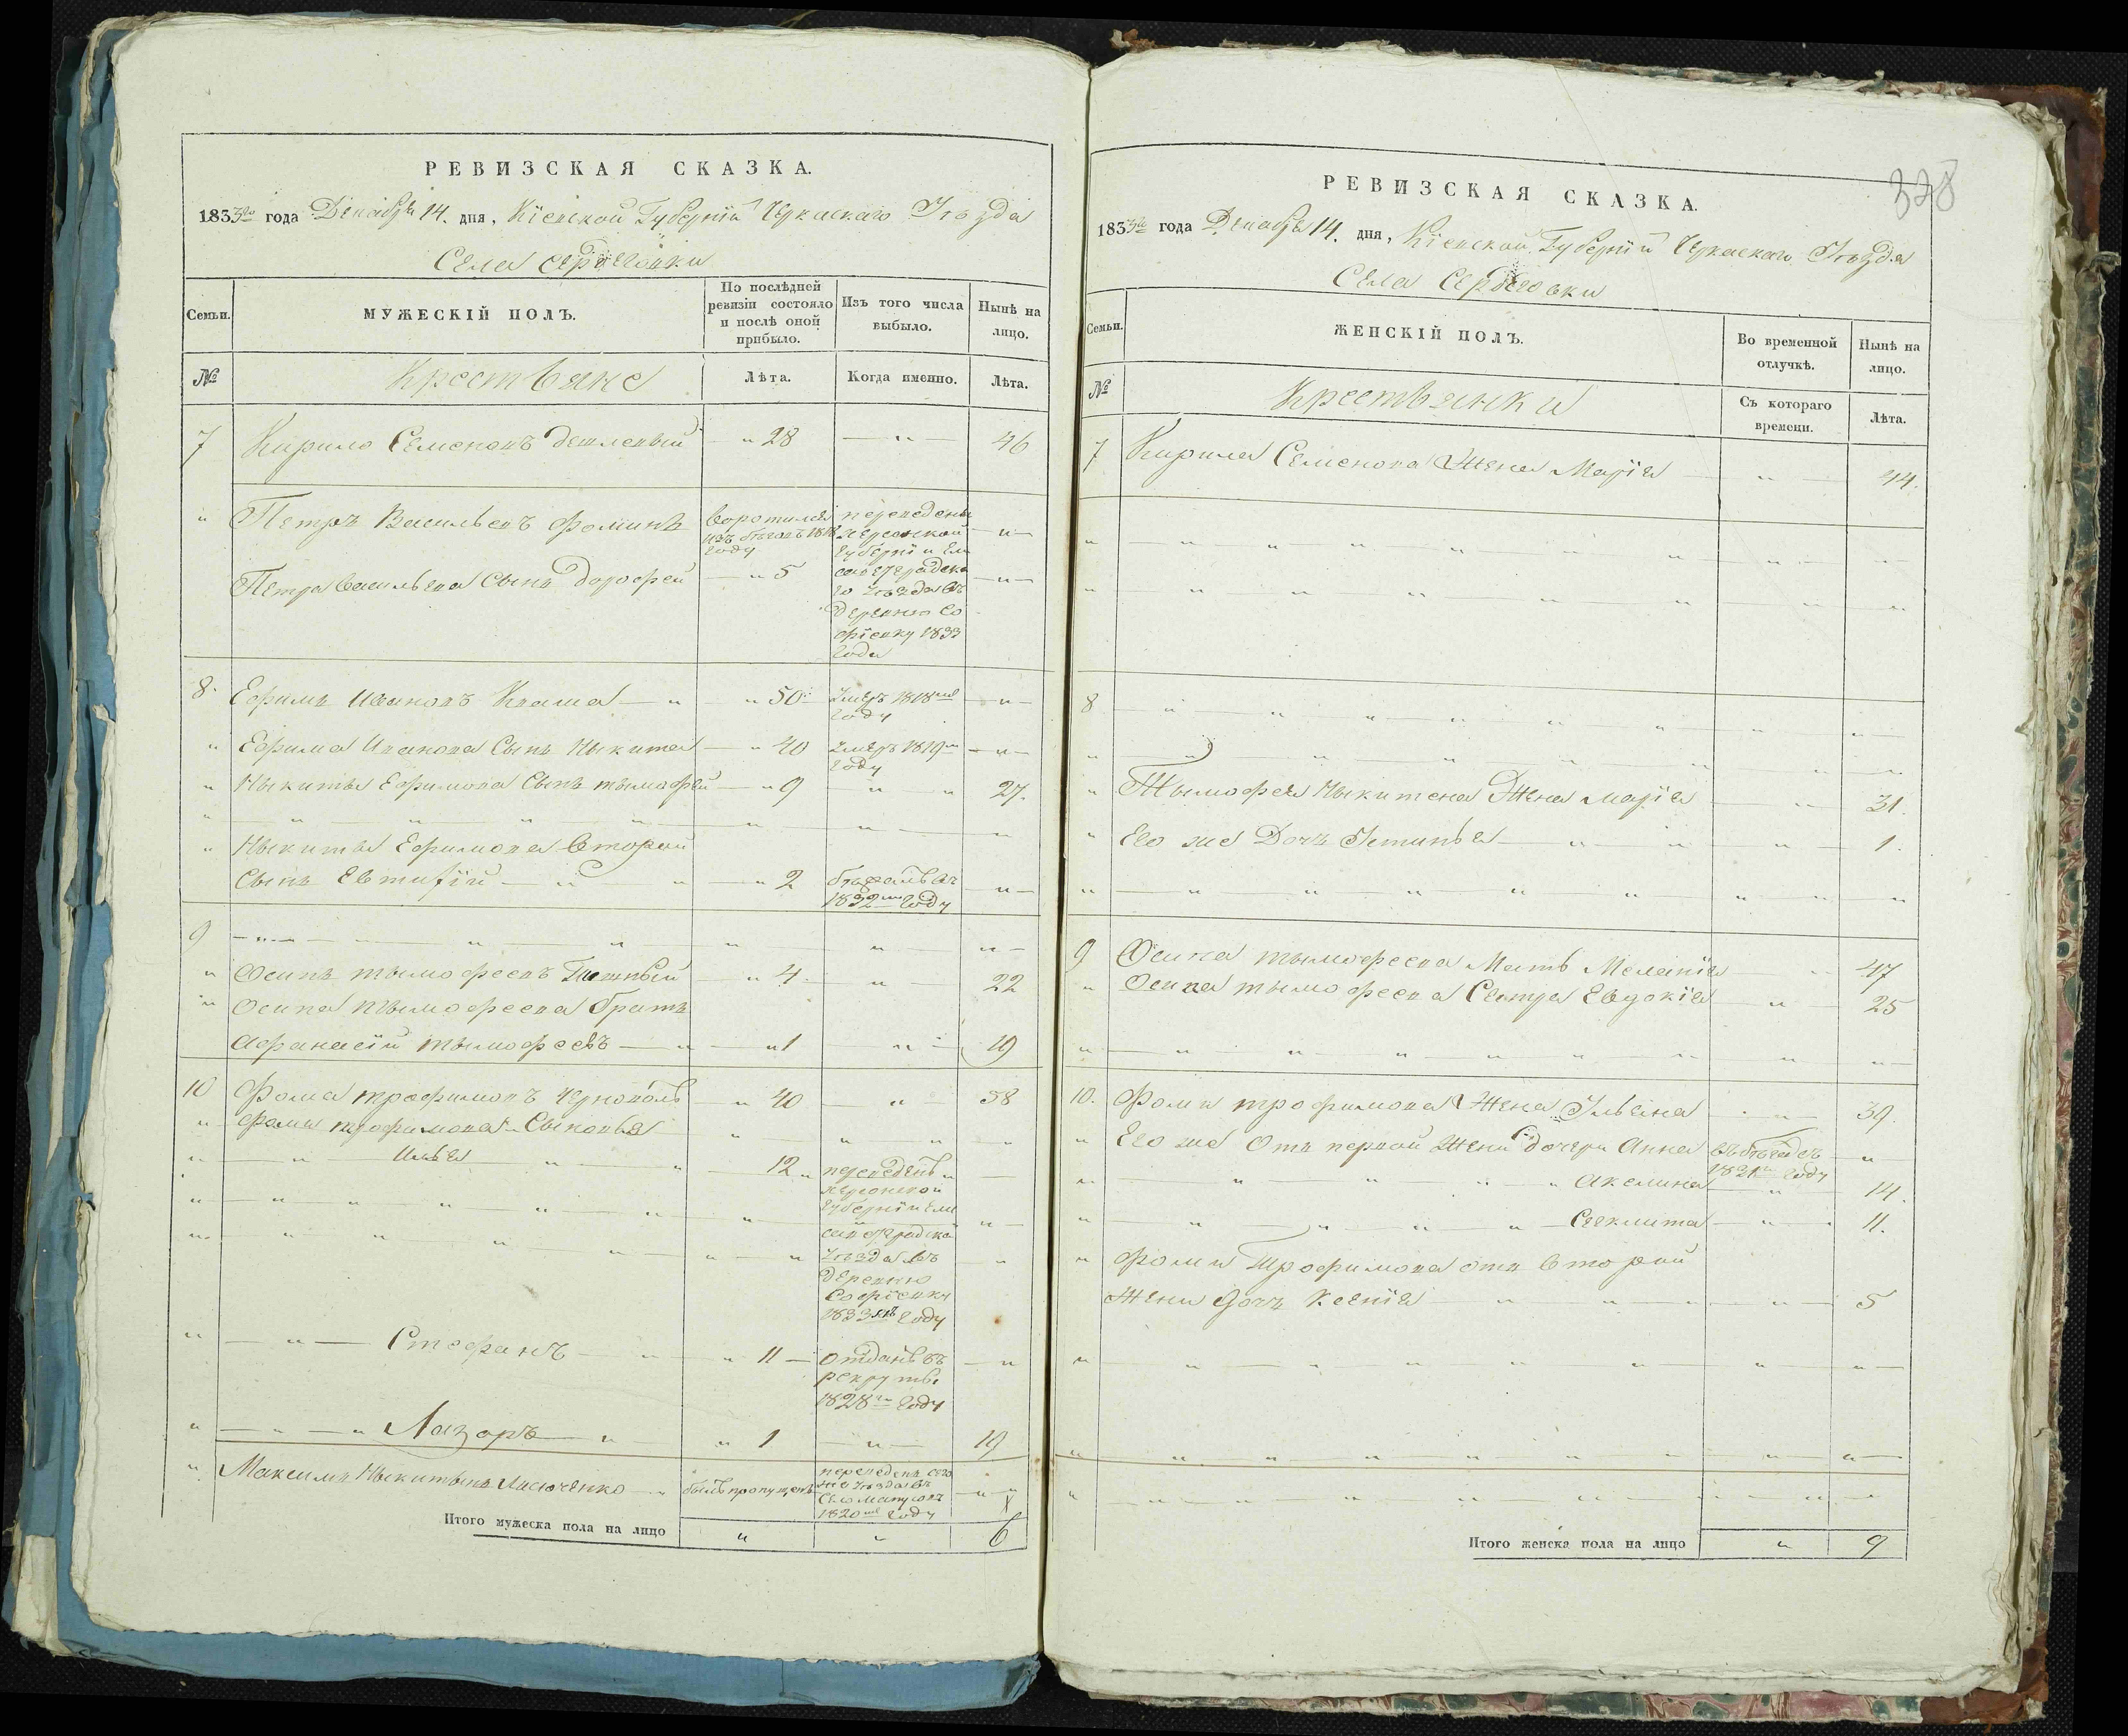 РЕВИЗСКАЯ СКАЗКА.
1833го года Декабря 14. дня, Кіевской Губерніи Черкаскаго Уѣзда
Села Сердеговки
Семьи.
МУЖЕСКІЙ ПОЛЪ.
По послѣдней ревизіи состояло и послѣ оной прибыло.
Изъ того числа выбыло.
Нынѣ на лицо.
№
Крестьяне
Лѣта.
Когда именно.
Лѣта.
7 Кирило Семеновъ " 28 — " — 46
" Петръ Васильевъ Фоминъ воротился изъ бѣговъ 1818 году переведены Херсонской губерніи Елисаветградского Уѣзда въ деревню Софіевку 1833 года — " —
Петра Васильева Сынъ Дорофей — " 5 — " —
8. Ефимъ Ивановъ Кваша — " " 50 Умеръ 1818го году — " —
" Ефима Иванова Сынъ Никита — " 40 Умеръ 1819го году — " —
" Никиты Ефимова Сынъ тимофей — " 9 " " 27.
" Никиты Ефимова второй
Сынъ Евтифій — " " — " 2 бѣжалъ въ 1832мъ году — " —
9 — " — " " " " " —
" Осипъ тимофеевъ " 4. — " — 22
" Осипа тимофеева братъ
Афанасій тимофеевъ — " — " 1 — " — 19
10 Фома трофимовъ Чернополь — " 40 — " — 58
" Фомы трофимова Сыновья " " " "
" — " — Илья " " — 12 " переведенъ Херсонской губерніи Елисаветградска Уѣзда въ деревню Софіевку 1833мъ году " —
" — " — Стефанъ — " " 11 — отданъ въ рекруты 1828го году — "
" — " — " Лазоръ — " — " 1 — " — 19
" Максимъ Никитинъ Лисюченко — " былъ пропущенъ переведенъ сего же Уѣзда въ Село 1820мъ году — " — "
Итого мужеска пола на лицо " " 6
328
РЕВИЗСКАЯ СКАЗКА.
1833го года Декабря 14. дня, Кіевской Губерніи Черкаскаго Уѣзда
Села Сердеговки
Семьи.
ЖЕНСКІЙ ПОЛЪ.
Во временной отлучкѣ.
Нынѣ на лицо.
№
Крестьянки
Съ котораго времени.
Лѣта.
7 Кирила Семенова Жена Марія — " — 44.
8 — " " " " " " " —
" Тимофея Никитена Жена Марія — " — 31.
" Его же Дочъ Устинья — " — " — " — 1.
9 Осипа тимофеева Мать Меланія — " 47
" Осипа тимофеева Сестра Евдокія — " — 25
10. Фомы трофимова Жена Ульяна — " — 39.
" Его же Отъ первой Жени дочери Анна въ бѣгахъ съ 1821го году — "
" " " " " Акелина — " — 14.
" " " " — Секлита — " — 11.
" Фомы Трофимова отъ второй
Жены дочъ Ксенія — " " — " — 5
Итого женска пола на лицо " 9